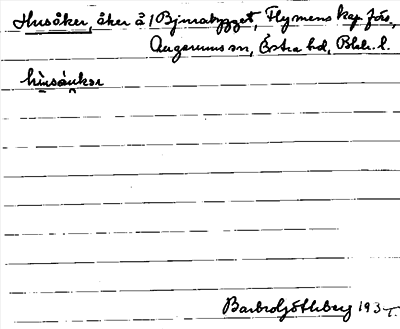 Husåker, åker å 1 Bjurabygget, Flymens kap. förs,
Augerums sn, Östra hd, Blek. l.
hùsåukar
Barbro Göthberg 193